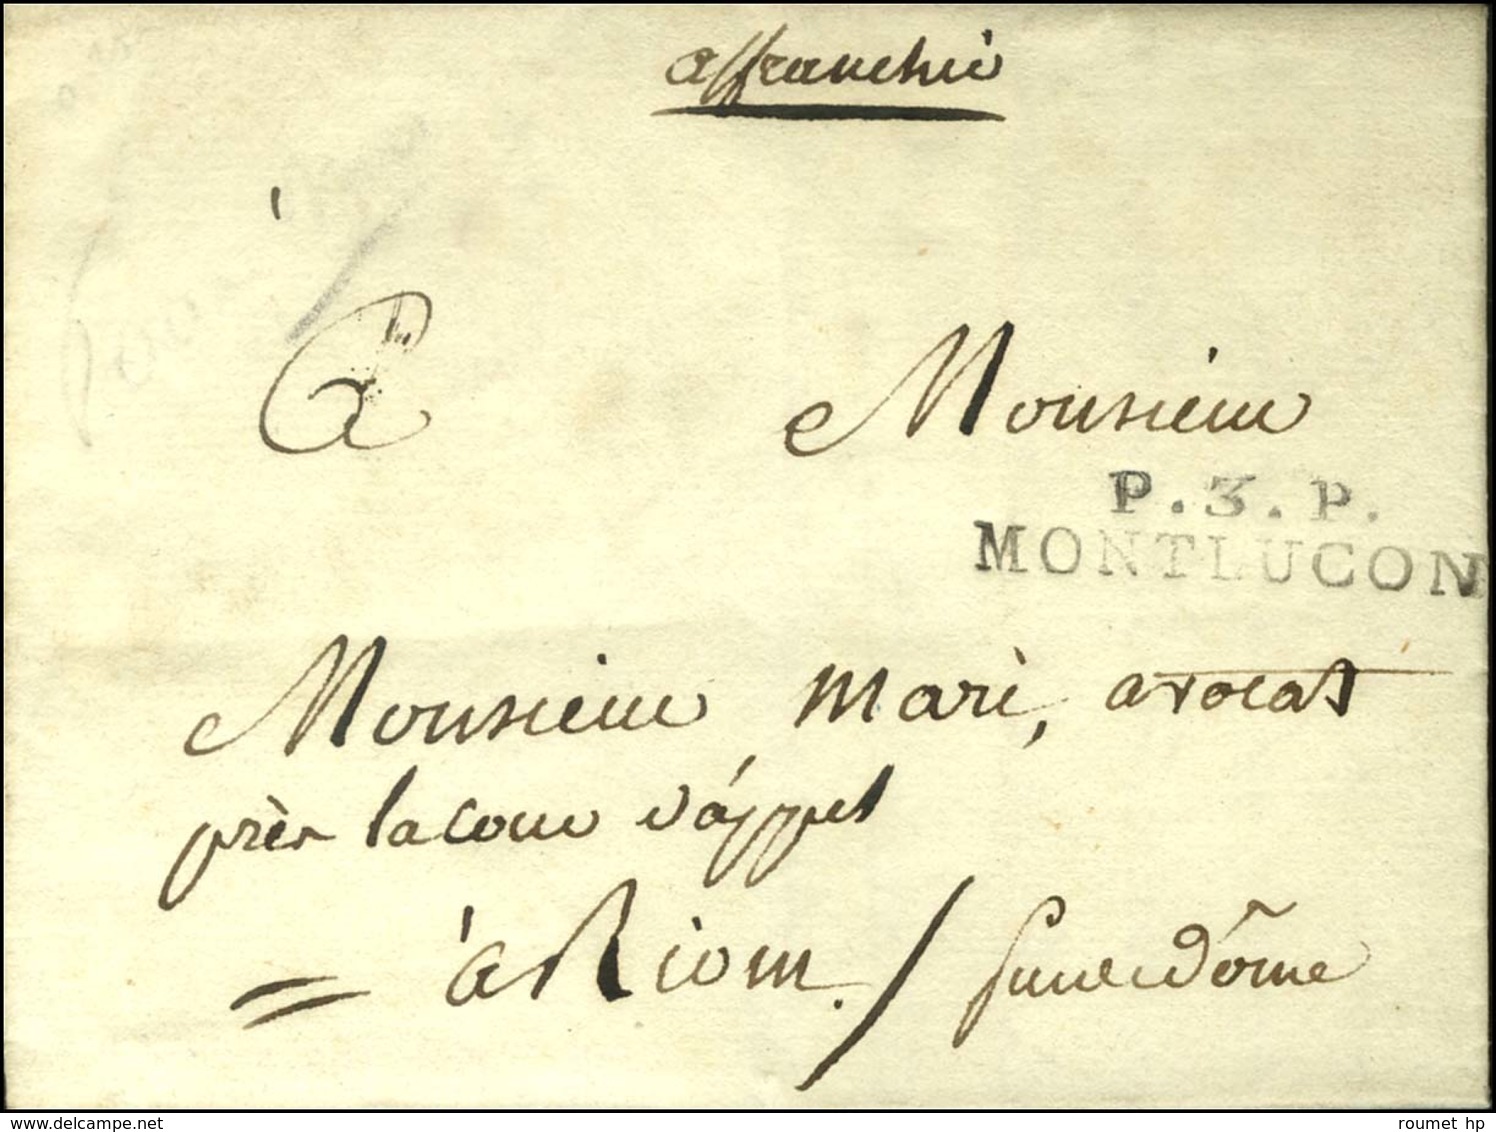 affranchie
à Monsieur
P. 3. P.
MONTLUCON
Monsieur Marie, avocat
près la cour d'appel
= à Riom. / puuedôme
delcampe.net
roumet hp